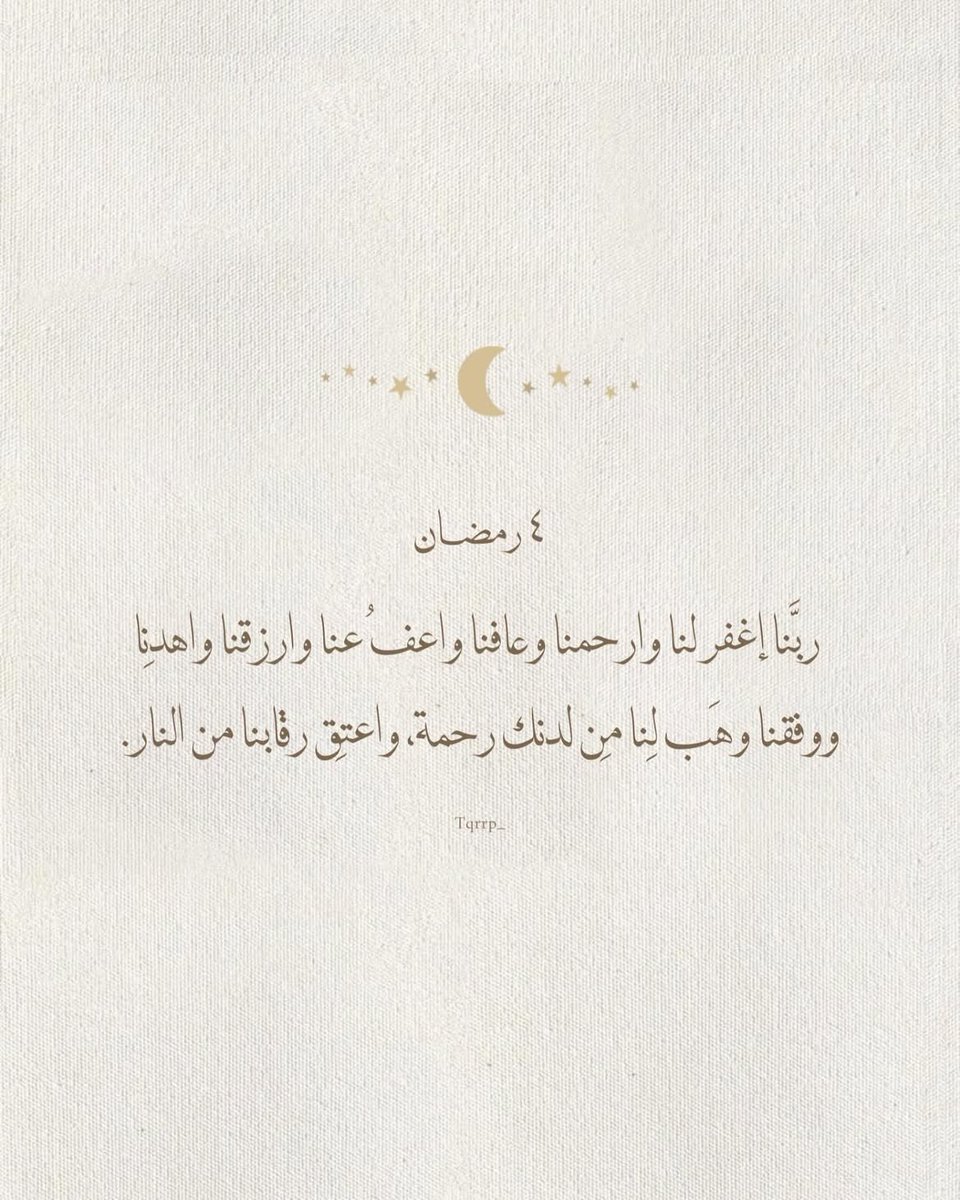 ٤ رمضـان
ربَّنا إغفر لنا وارحمنا وعافنا واعفُ عنا وارزقنا واهدنِا
ووفقنا وهَب لِنا مِن لدنك رحمة، واعتِق رقابنا من النار.
Tqrrp_